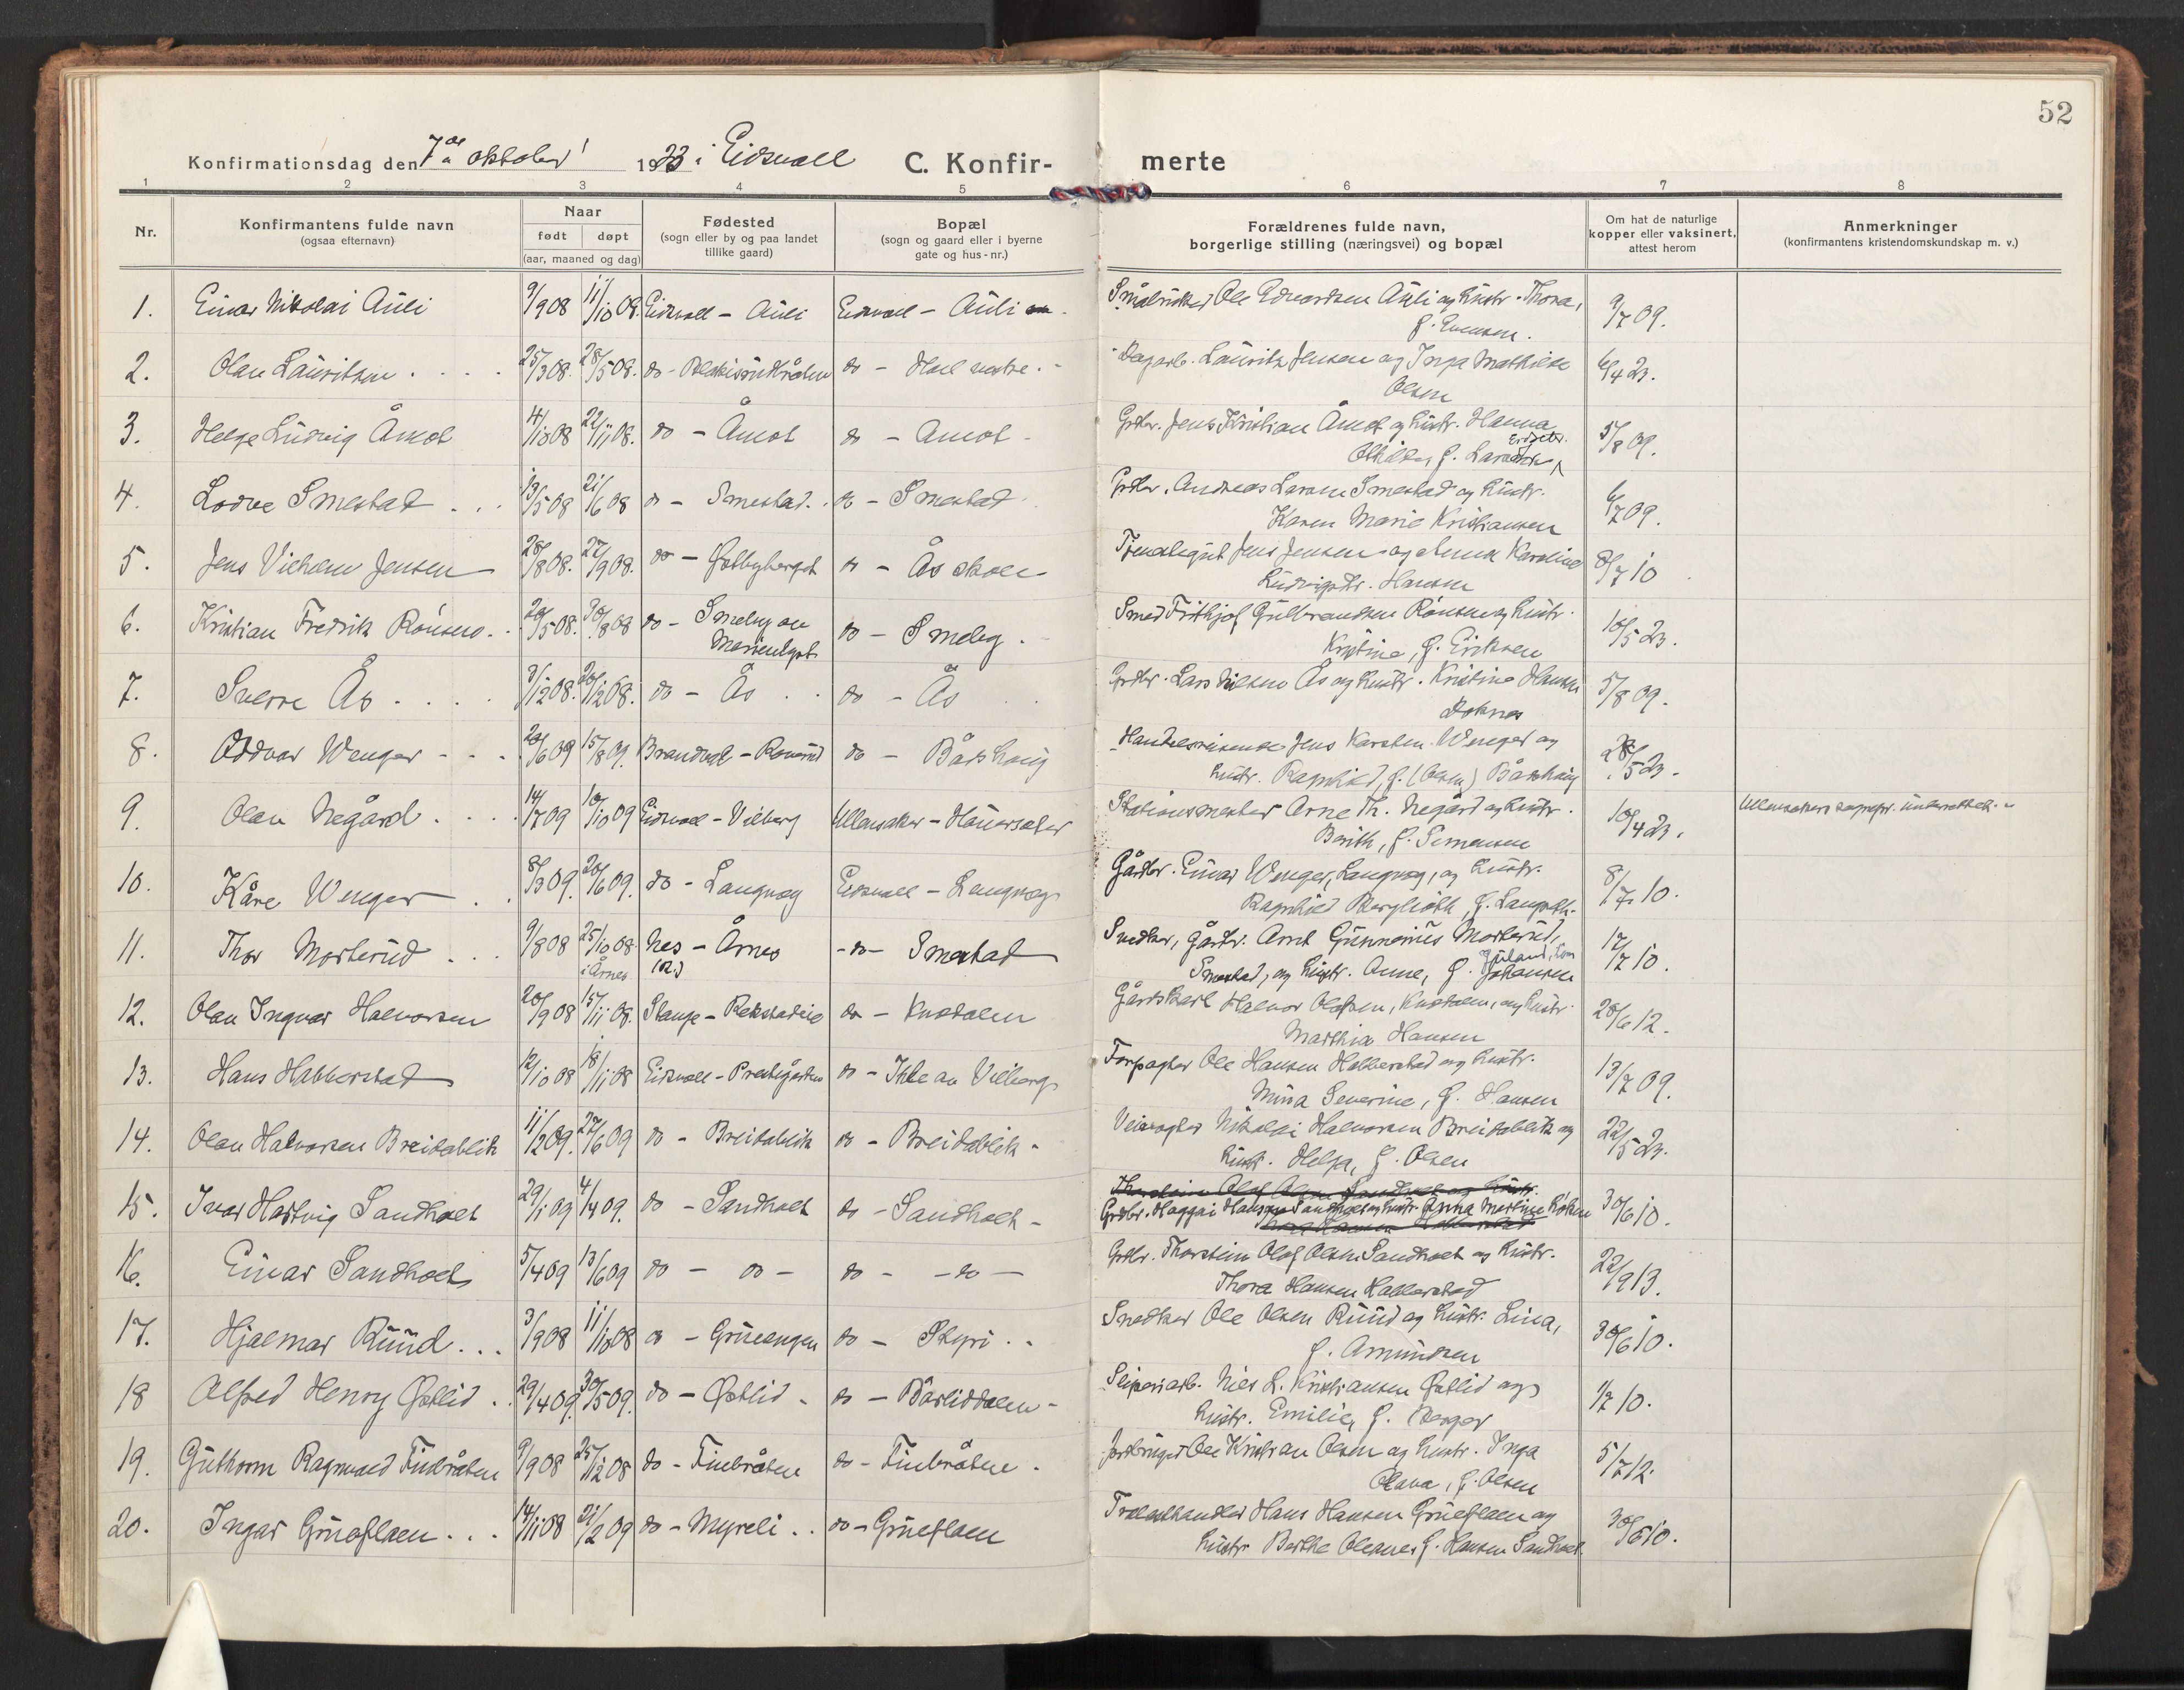 52
Konfirmationsdag den 7de oktober 1923 i Eidsvoll C. Konfir- merte
1 2 3 4 5 6 7 8
Nr.
Konfirmantens fulde navn
(ogsaa efternavn)
Naar
født døpt
(aar, maaned og dag)
Fødested
(sogn eller by og paa landet
tillike gaard)
Bopæl
(sogn og gaard eller i byerne
gate og hus-nr.)
Forældrenes fulde navn,
borgerlige stilling (næringsvei) og bopæl
Om hat de naturlige
kopper eller vaksinert,
attest herom
Anmerkninger
(konfirmantens kristendomskundskap m. v.)
1. Einar Nikolai Auli 9/9 08 11/10 08. Eidsvoll - Auli Eidsvoll - Auli Ole Edvardsen Auli og hustr. Thora, 9/7 09.
f. Evensen.
2. Olav Lauritsen 25/3 08. 28/5 08. do - do - Hol vestre. Dagarb. Lauritz Jensen og Inga Mathilde 6/4 23.
Olsen
3. Helge Ludvig Åmot 4/10 08 22/11 08. do - Åmot do - Åmot Grdbr. Jens Kristian Åmot og hustr. Hanna 5/8 09.
f.
4. Lodve Smestad 13/5 08 21/6 08 do - Smestad. do - Smestad Grdbr. Andreas Larsen Smestad og hustr. 6/7 09.
Karen Marie Kristiansen
5. Jens Vilhelm Jensen 28/8 08. 27/9 08. do - Østbyberget do - Ås skole Jens Jensen og Anna Karoline 8/7 10
Ludvigsdtr. Hansen
6. Kristian Fredrik Rønsen. 20/5 08. 30/8 08 do - Smeby av do - Smeby. Smed Frithjof Gulbrandsen Rønsen og hustr. 10/5 23.
Kristine, f. Eriksen
7. Sverre Ås 3/12 08. 20/12 08. do - Ås do - Ås Grdbr. Lars Nilsen Ås og hustr. Kristine Hansen 5/8 09.
Doknes
8. Oddvar Wenger 20/6 09 15/8 09. Brandval - do - Bårshaug Handelsreisende Jens Karsten Wenger og 28/5 23.
hustr. Ragnhild, f. (Olsen) Bårshaug
9. Olav Negård 14/7 09 10/10 09 Eidsvoll - Vilberg Ullensaker - Hauerseter Stationsmester Arne Th. Negård og hustr. 10/4 23. Ullensakers sognepr. underrettet.
Berith, f. Simensen
10. Kåre Wenger 8/3 09. 20/6 09. do - Langvag Eidsvoll - Langvag Gårdbr. Einar Wenger, Langvag, og hustr. 8/7 10.
Ragnhild Berglioth, f.
11. Thor Morterud 9/8 08 25/10 08. Nes - Årnes do - Smestad Snedker, gårdbr. Arnt Gunnerius Morterud, 17/7 10.
i Årnes (R.) Smestad, og hustr. Anne, f. Johansen
12. Olav Ingvar Halvorsen 20/9 08 15/11 08. Stange - do - Knatalen Gårdskarl Halvor Olafsen, Knatalen, og hustr. 28/6 12.
Marthia Hansen
13. Hans Habberstad 12/10 08 18/11 08 Eidsvoll - Prestegården do - Ihle av Vilberg Forpagter Ole Hansen Habberstad og hustr. 13/7 09.
Mina Severine, f. Hansen
14. Olav Halvorsen Breidablik 11/2 09. 27/6 09 do - Breidablik do - Breidablik Veivogter Nikolai Halvorsen Breidablik og 22/5 23.
hustr. Helga, f. Olsen
15. Ivar Hartvig Sandholt 29/1 09 4/4 09. do - Sandholt do - Sandholt Thorstein Olaf Olsen Sandholt og hustr. 30/6 10.
Grdbr. Haggai Hansen Sandholt og hustr. Anna Martine
Thora Hansen Habberstad
16. Einar Sandholt 5/4 09 13/6 09 do - do - do - do - Grdbr. Thorstein Olaf Olsen Sandholt og hustr. 22/9 13.
Thora Hansen Habberstad
17. Hjalmar Ruud. 3/9 08 11/10 08 do - Grueengen do - Styri Snedker Ole Olsen Ruud og hustr. Lina, 30/6 10.
f. Amundsen
18 Alfred Henry Østlid 29/4 09. 30/5 09. do - Østlid do - Bårliddalen Sliperiarb. Nils L. Kristiansen Østlid og 1/7 10.
hustr. Emilie, f. Berger
19. Guthorm Ragnvald Finbråten 9/9 08 25/12 08 do - Finbråten do - Finbråten. Jordbruger Ole Kristian Olsen og hustr. Inga 5/7 12.
Olava, f. Olsen
20. Ingar Grueflaen 14/11 08 21/2 09 do - Myreli do - Grueflaen Trælasthandler Hans Hansen Grueflaen og 30/6 10.
hustr. Berthe f. Hansen Sandholt